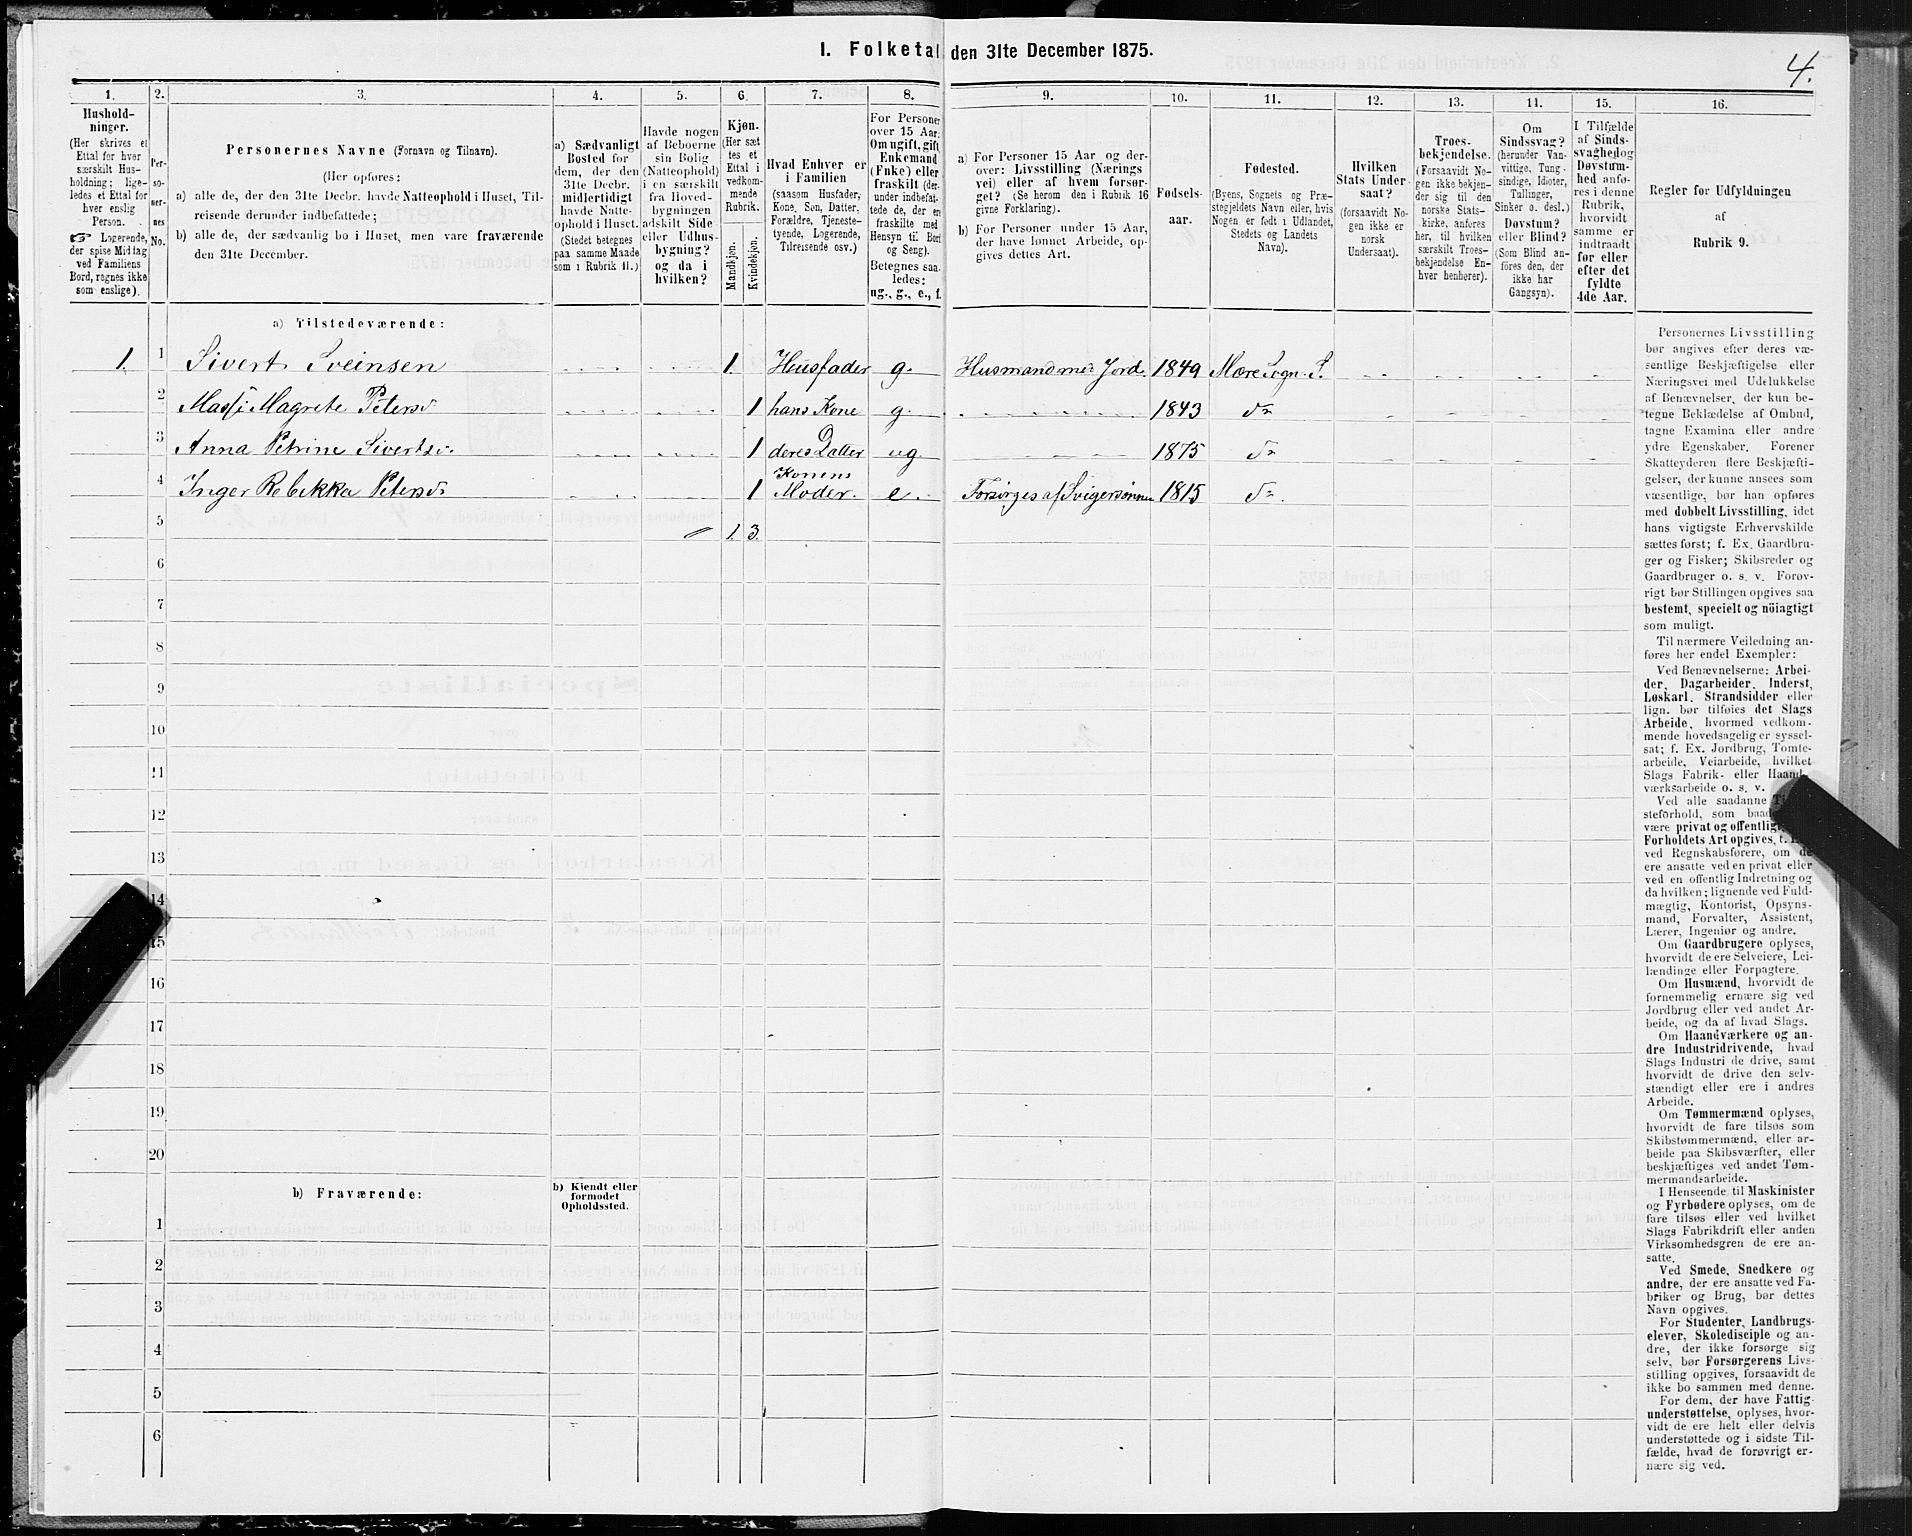 I. Folketal den 31te December 1875.
4.
1.
2.
3.
4.
5.
6.
7.
8.
9.
10.
11.
12.
13.
14.
15.
16.
Hushold-
ninger.
(Her skrives et
Ettal for hver
særskilt Hus-
holdning; lige-
ledes et Ettal for
hver enslig
Person.
☞ Logerende,
der spise Middag
ved Familiens
Bord, regnes ikke
som enslige).
Per-
so-
ner-
nes
No.
Personernes Navne (Fornavn og Tilnavn).
(Her opføres:
a) alle de, der den 31te Decbr. havde Natteophold i Huset, Til-
reisende derunder indbefattede;
b) alle de, der sædvanlig bo i Huset, men vare fraværende
den 31te December.
a) Sædvanligt
Bosted for
dem, der den
31te Decbr.
midlertidigt
havde Natte-
ophold i Huset.
(Stedet betegnes
paa samme Maade
som i Rubrik 11.)
Havde nogen
af Beboerne
sin Bolig
(Natteophold)
i en særskilt
fra Hoved-
bygningen
adskilt Side-
eller Udhus-
bygning?
og da i
hvilken?
Kjøn.
(Her sæt-
tes et
Ettal i
vedkom-
mende
Rubrik.
Mandkjøn.
Kvindekjøn.
Hvad Enhver er
i Familien
(saasom Husfader,
Kone, Søn, Datter,
Forældre, Tjeneste-
tyende, Logerende,
Tilreisende osv.)
For Personer
over 15 Aar:
Om ugift, gift,
Enkemand
(Enke) eller
fraskilt (der-
under indbefat-
tede de, der ere
fraskilte med
Hensyn til Bord
og Seng).
Betegnes saa-
ledes:
ug., g., e., f.
a) For Personer 15 Aar og der-
over: Livsstilling (Nærings-
vei) eller af hvem forsør-
get? (Se herom den i Rubrik 16
givne Forklaring).
b) For Personer under 15 Aar,
der have lønnet Arbeide, op-
gives dettes Art.
Fødsels-
aar.
Fødested.
(Byens, Sognets og Præ-
stegjeldets Navn eller, hvis
Nogen er født i Udlandet,
Stedets og Landets
Navn).
Hvilken
Stats Under-
saat?
(forsaavidt No-
gen ikke er
norsk
Undersaat).
Troes-
bekjendelse.
(Forsaavidt No-
gen ikke bekjen-
der sig til den
norske Stats-
kirke, anføres
her, til hvilken
særskilt Troes-
bekjendelse En-
hver henhører).
Om
Sindssvag?
(herunder Van-
vittige, Tung-
sindige, Idioter,
Tullinger,
Sinker o. desl.)
Døvstum?
eller Blind?
(Som Blind an-
føres den, der
ikke har
Gangsyn).
I Tilfælde
af Sinds-
svaghed og
Døvstum-
hed anfø-
res i denne
Rubrik,
hvorvidt
samme er
indtraadt
før eller
efter det
fyldte
4de Aar.
Regler for Udfyldningen
af
Rubrik 9.
a) Tilstedeværende:
1. 1 Sivert Sveinsen 1. Husfader g. Husmand med Jord. 1849 Mære Sogn. S.
2 Massi Magrete Petersd. 1 hans Kone g. 1843 do
3 Anna Petrine Sivertsd. 1 deres Datter ug. 1875 do
4 Inger Rebekka Petersd. 1 Konens Moder. e. Forsørges af Svigersønnen 1815 do.
5 1. 3.
6
7
8
9
10
11
12
13
14
15
16
17
18
19
20
b) Fraværende:
b) Kjendt eller
formodet
Opholdssted.
1
2
3
4
5
6
Personernes Livsstilling
bør angives efter deres væ-
sentlige Beskjæftigelse eller
Næringsvei med Udelukkelse
af Benævnelser, der kun be-
tegne Beklædelse af Ombud,
tagne Examina eller andre
ydre Egenskaber. Forener
Skatteyderen flere Beskjæfti-
gelser, der kunne ansees som
væsentlige, bør han opføres
med dobbelt Livsstilling, idet
hans vigtigste Erhvervskilde
sættes først; f. Ex. Gaardbru-
ger og Fisker; Skibsreder og
Gaardbruger o. s. v. Forøv-
rigt bør Stillingen opgives saa
bestemt, specielt og nöiagtigt
som muligt.
Til nærmere Veiledning an-
føres her endel Exempler:
Ved Benævnelserne: Arbei-
der, Dagarbeider, Inderst,
Løskarl, Strandsidder eller
lign. bør tilføies det Slags
Arbeide, hvormed vedkom-
mende hovedsagelig er syssel-
sat; f. Ex. Jordbrug, Tomte-
arbeide, Veiarbeide, hvilket
Slags Fabrik- eller Haand-
værksarbeide o. s. v.
Ved alle saadanne
steforhold, som
være privat og offentlig,
Forholdets Art opgives,
ved Regnskabsførere, om de
ere ansatte ved en privat eller
ved en offentlig Indretning og
da hvilken; lignende ved Fuld-
mægtig, Kontorist, Opsyns-
mand, Forvalter, Assistent,
Lærer, Ingeniør og andre.
Om Gaardbrugere oplyses,
hvorvidt de ere Selveiere, Lei-
lændinge eller Forpagtere.
Om Husmænd, hvorvidt de
fornemmelig ernære sig ved
Jordbrug eller ved andet Ar-
beide, og da af hvad Slags.
Om Haandværkere og an-
dre Industridrivende, hvad
Slags Industri de drive, samt
hvorvidt de drive den selv-
stændigt eller ere i andres
Arbeide.
Om Tømmermænd oplyses,
hvorvidt de fare tilsøs som
Skibstømmermænd, eller ar-
beide paa Skibsværfter, eller
beskjæftiges ved andet Tøm-
mermandsarbeide.
I Henseende til Maskinister
og Fyrbødere oplyses, om de
fare tilsøs eller ved hvilket
Slags Fabrikdrift eller anden
Virksomhedsgren de ere an-
satte.
Ved Smede, Snedkere og
andre, der ere ansatte ved Fa-
briker og Brug, bør dettes
Navn opgives.
For Studenter, Landbrugs-
elever, Skoledisciple og an-
dre, der ikke forsørge sig
selv, bør Forsørgerens Livs-
stilling opgives, forsaavidt de
ikke bo sammen med denne.
For dem, der have Fattig-
understøttelse, oplyses, hvor-
vidt de ere helt eller delvis
understøttede og i sidste Til-
fælde, hvad de forøvrigt er-
nære sig ved.